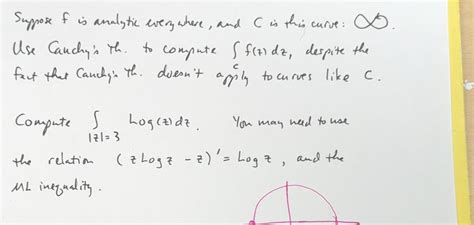 Suppose f is analytic everywhere, and C is this curve: ∞.
Use Cauchy's Th. to compute ∫_C f(z) dz, despite the
fact that Cauchy's Th. doesn't apply to curves like C.
Compute ∫_{|z|=3} Log(z) dz. You may need to use
the relation (z Log z - z)' = Log z, and the
ML inequality.